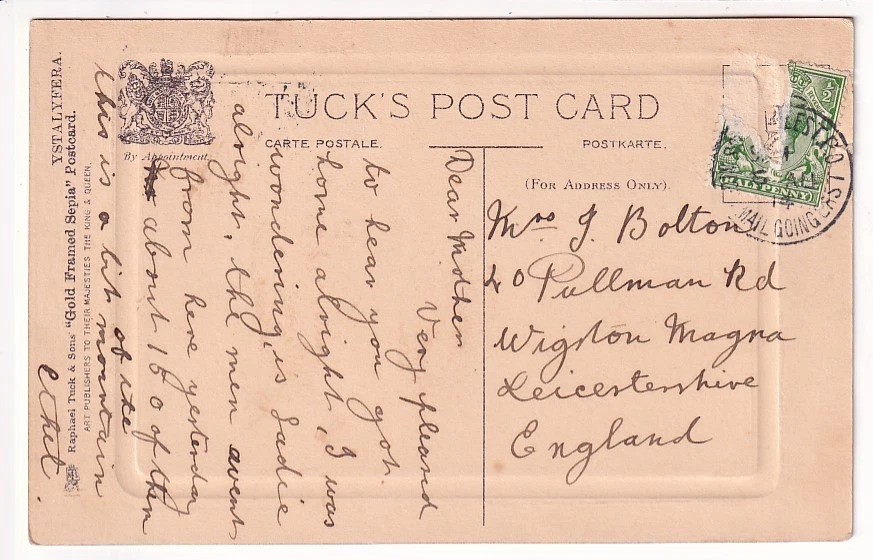 TUCK'S POST CARD
CARTE POSTALE.
POSTKARTE.
(For Address Only).
By Appointment.
HALFPENNY
MAIL GOING EAST
AU
14
Mrs J. Bolton
40 Pullman Rd
Wigston Magna
Leicestershire
England
Dear Mother
Very pleased
to hear you got
home alright, I was
wondering, is Sadie
alright, the men went
from here yesterday
about 150 of them
this is a bit mountain
of it
Ethel.
YSTALYFERA.
Raphael Tuck & Sons' "Gold Framed Sepia" Postcard.
ART PUBLISHERS TO THEIR MAJESTIES THE KING & QUEEN.